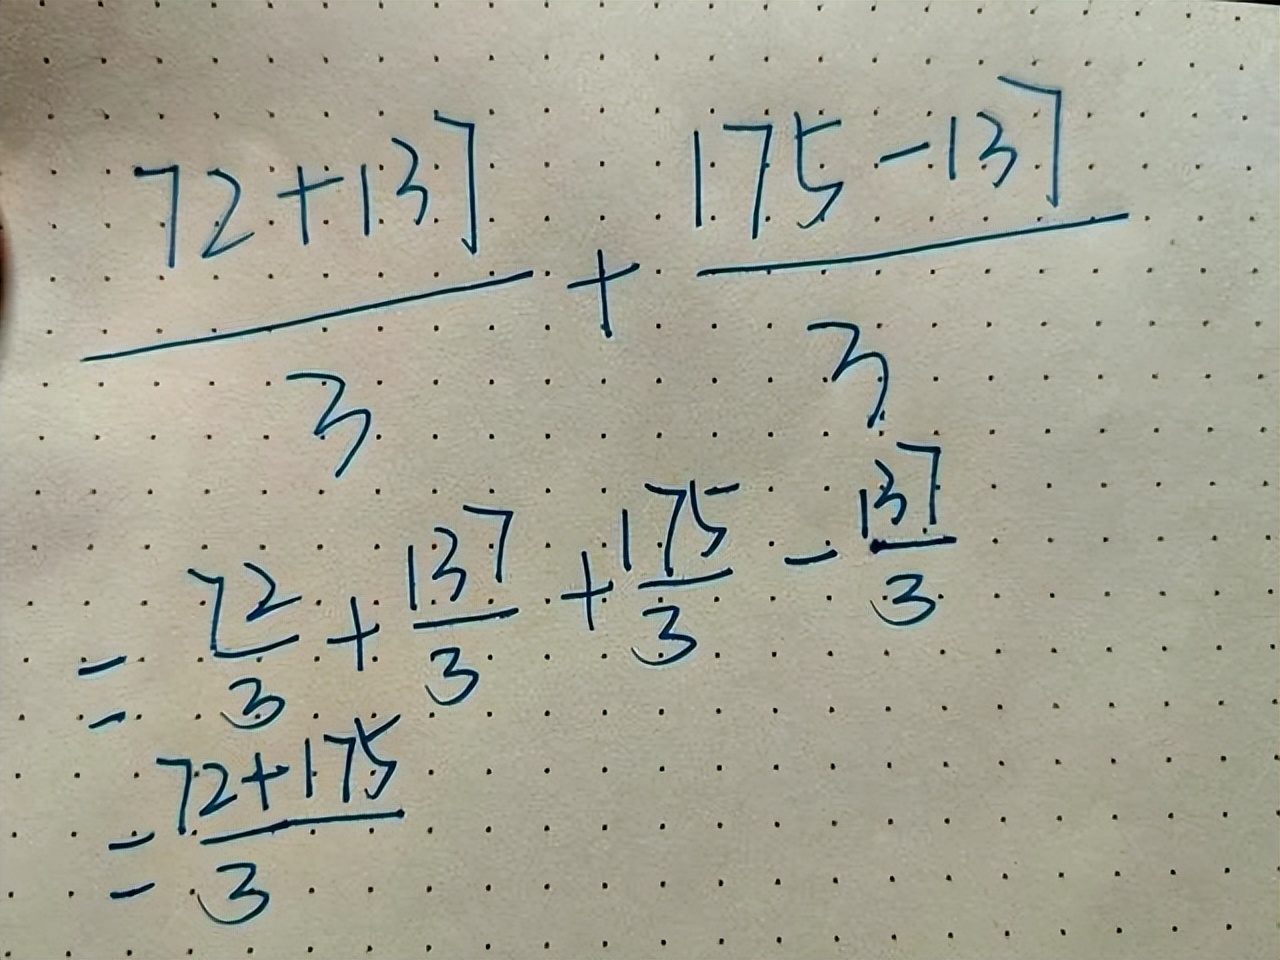 72+137
175-137
+
3
3
= 72/3 + 137/3 + 175/3 - 137/3
= 72+175
3